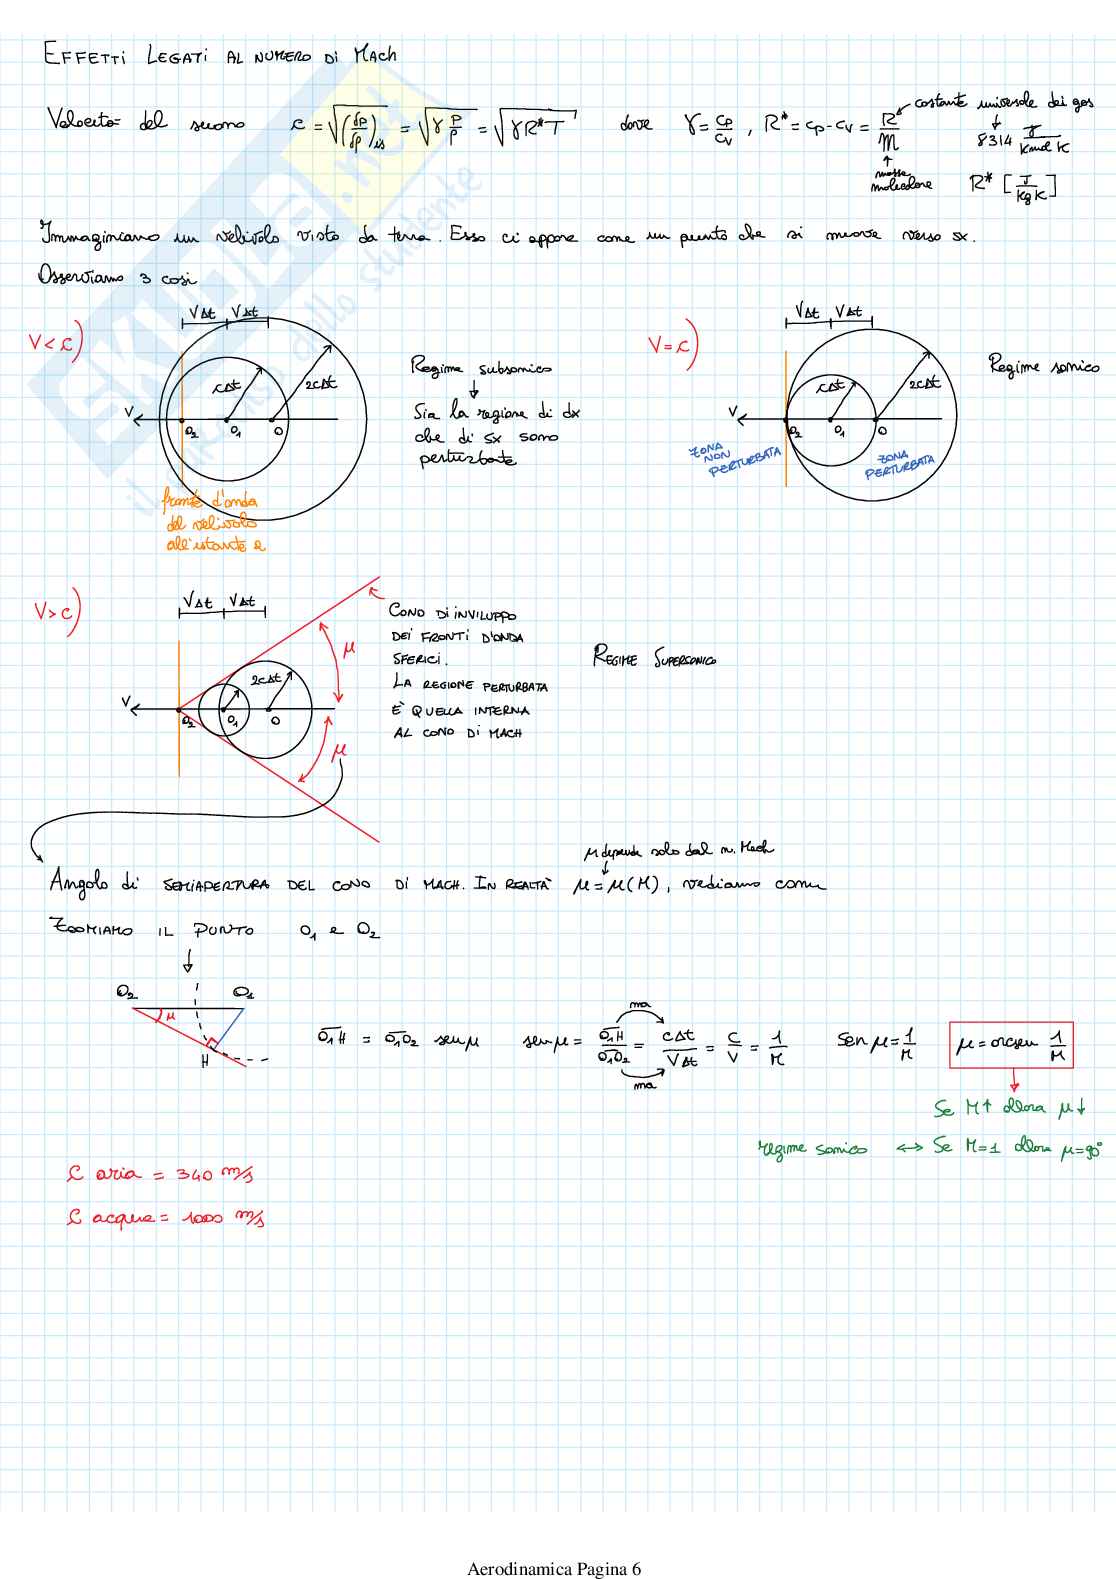 EFFETTI LEGATI AL NUMERO DI MACH
Velocità del suono c = √(δp/δρ)is = √γ p/ρ = √γR*T dove γ = cp/cv , R* = cp - cv = R/m
costante universale dei gas
8314 J/kmol K
massa molecolare
R* [J/kg K]
Immaginiamo un velivolo visto da terra. Esso ci appare come un punto che si muove verso sx.
Osserviamo 3 casi
V < c)
VΔt VΔt
cΔt 2cΔt
V O2 O1 O
fronte d'onda
del velivolo
all'istante
Regime subsonico
Sia la regione di dx
che di sx sono
perturbate
V = c)
VΔt VΔt
cΔt 2cΔt
V O2 O1 O
ZONA
NON
PERTURBATA
ZONA
PERTURBATA
Regime sonico
V > c)
VΔt VΔt
2cΔt
V O2 O1 O
μ
μ
CONO DI INVILUPPO
DEI FRONTI D'ONDA
SFERICI.
LA REGIONE PERTURBATA
È QUELLA INTERNA
AL CONO DI MACH
REGIME SUPERSONICO
μ dipende solo dal n. Mach
Angolo di SEMIAPERTURA DEL CONO DI MACH. IN REALTÀ μ = μ(M), vediamo come
ZOOMIAMO IL PUNTO O1 e O2
O2 O1
μ
H
O1H = O1O2 senμ
ma
senμ = O1H/O1O2 = cΔt/VΔt = c/V = 1/M
ma
senμ = 1/M
μ = arcsen 1/M
Se M↑ allora μ↓
regime sonico ↔ Se M=1 allora μ=90°
c aria = 340 m/s
c acqua = 1000 m/s
SKUOLA.net
Aerodinamica Pagina 6